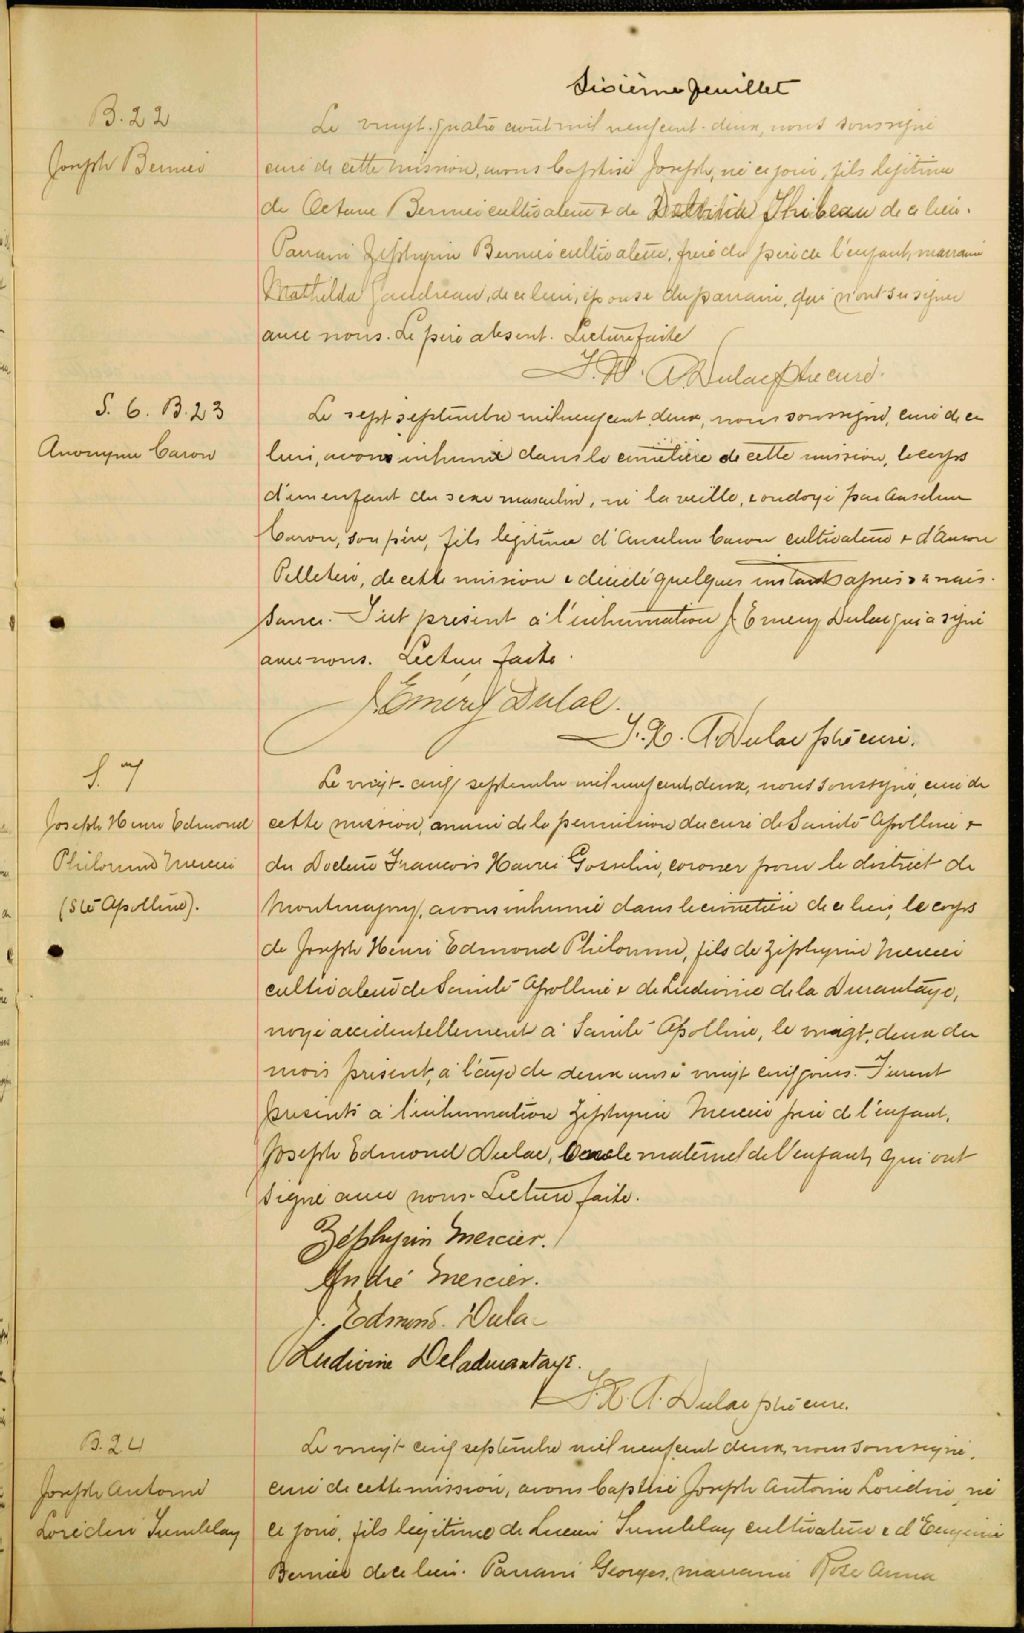 Sixième feuillet
B. 22
Joseph Bernier
Le vingt-quatre août mil neuf cent-deux, nous soussigné
curé de cette mission, avons baptisé Joseph, né ce jour, fils légitime
de Octave Bernier cultivateur & de Thibeau de ce lieu.
Parrain Zéphyrin Bernier cultivateur, frère du père de l'enfant, marraine
Mathilda Gaudreau, de ce lieu, épouse du parrain, qui n'ont su signer
avec nous. Le père absent. Lecture faite
F. X. A. Dulac ptre curé.
S. 6. B. 23
Anonyme Caron
Le sept septembre mil neuf cent deux, nous soussigné, curé de ce
lieu, avons inhumé dans le cimetière de cette mission, le corps
d'un enfant du sexe masculin, né la veille, & ondoyé par Anselme
Caron, son père, fils légitime d'Anselme Caron cultivateur & d'Aurore
Pelletier, de cette mission & décédé quelques instants après sa nais-
sance. Fut présent à l'inhumation J. Emery Dulac qui a signé
avec nous. Lecture faite.
J. Eméry Dulac.
F. X. A. Dulac ptre curé.
S. 7
Joseph Henri Edmond
Philorum Mercier
(Ste Apolline).
Le vingt-cinq septembre mil neuf cent deux, nous soussigné, curé de
cette mission, avec de la permission du curé de Sainte Apolline &
du Docteur Francois Henri Gosselin, coroner pour le district de
Montmagny, avons inhumé dans le cimetière de ce lieu, le corps
de Joseph Henri Edmond Philorum, fils de Zéphyrin Mercier
cultivateur de Sainte Apolline & de Ludivine de la Durantaye,
noyé accidentellement à Sainte Apolline, le vingt-deux du
mois présent, à l'âge de deux ans & vingt cinq jours. Furent
présents à l'inhumation Zéphyrin Mercier père de l'enfant,
Joseph Edmond Dulac, oncle maternel de l'enfant, qui ont
signé avec nous. Lecture faite.
Zéphyrin Mercier.
André Mercier.
J. Edmond. Dulac
Ludivine Deladurantaye.
F. X. A. Dulac ptre curé.
B. 24
Joseph Antoine
Lorédin Tremblay
Le vingt-cinq septembre mil neuf cent deux, nous soussigné,
curé de cette mission, avons baptisé Joseph Antoine Lorédin, né
ce jour, fils légitime de Lucien Tremblay cultivateur & d'Eugénie
Bernier de ce lieu. Parrain Georges, marraine Rose Anna